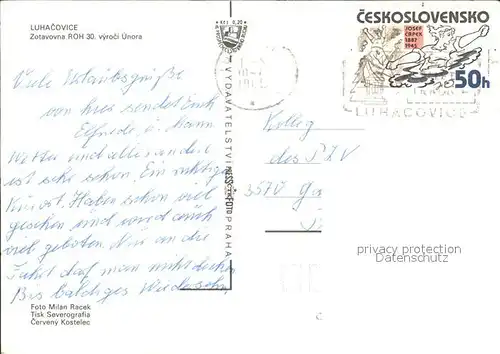 LUHAČOVICE
Zotavovna ROH 30. výročí Února
Viele Urlaubsgrüße
von hier sendet Euch
Elfriede u. Mann
Wetter und alles andere
ist sehr schön. Ein richtiger
Kurort. Haben schon viel
gesehen und wird auch
viel geboten. Nur an die
Fahrt darf man nicht denken
Bis baldiges Wiedersehn,
Foto Milan Racek
Tisk Severografia
Červený Kostelec
Kčs 0,20
VYDAVATELSTVÍ
PRAHA
ČESKOSLOVENSKO
JOSEF
ČAPEK
1887
1945
50h
LUHAČOVICE
Kolleg
des
3570
privacy protection
Datenschutz